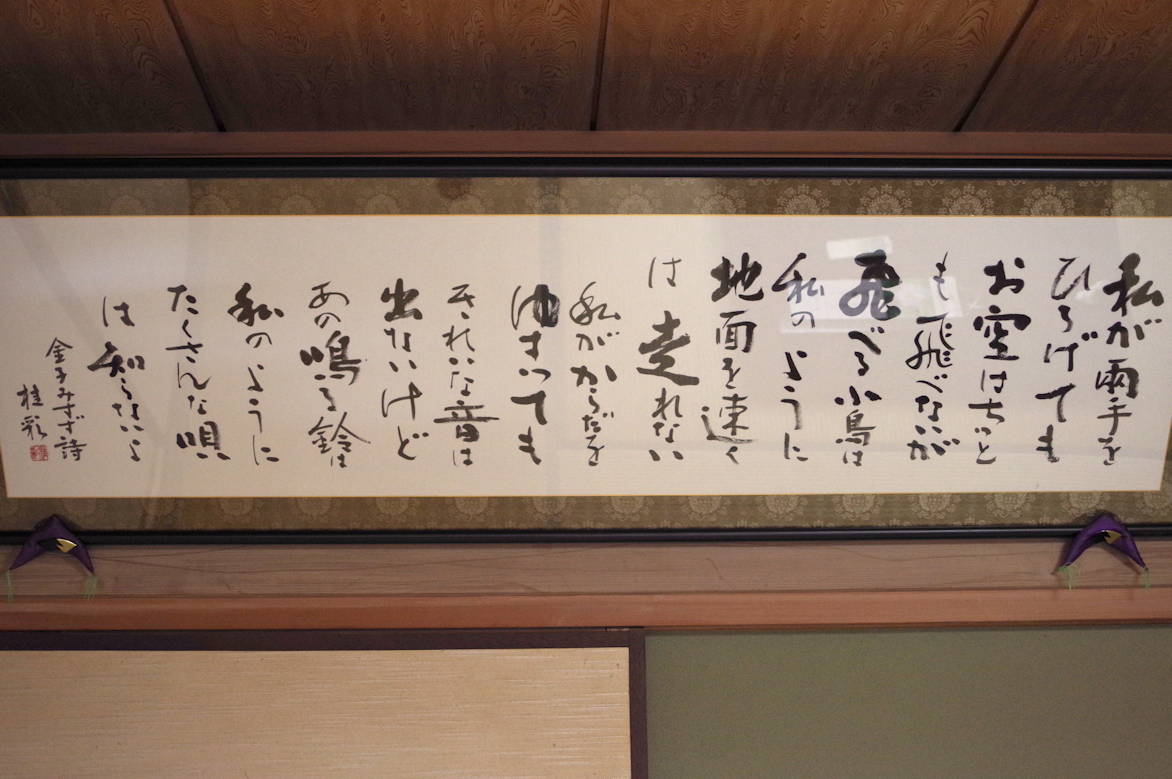 私が両手を
ひろげても
お空はちっと
も飛べないが
飛べる小鳥は
私のように
地面を速く
は走れない
私がからだを
ゆすっても
きれいな音は
出ないけど
あの鳴る鈴は
私のように
たくさんな唄
は知らないよ
金子みすゞ詩
桂彩